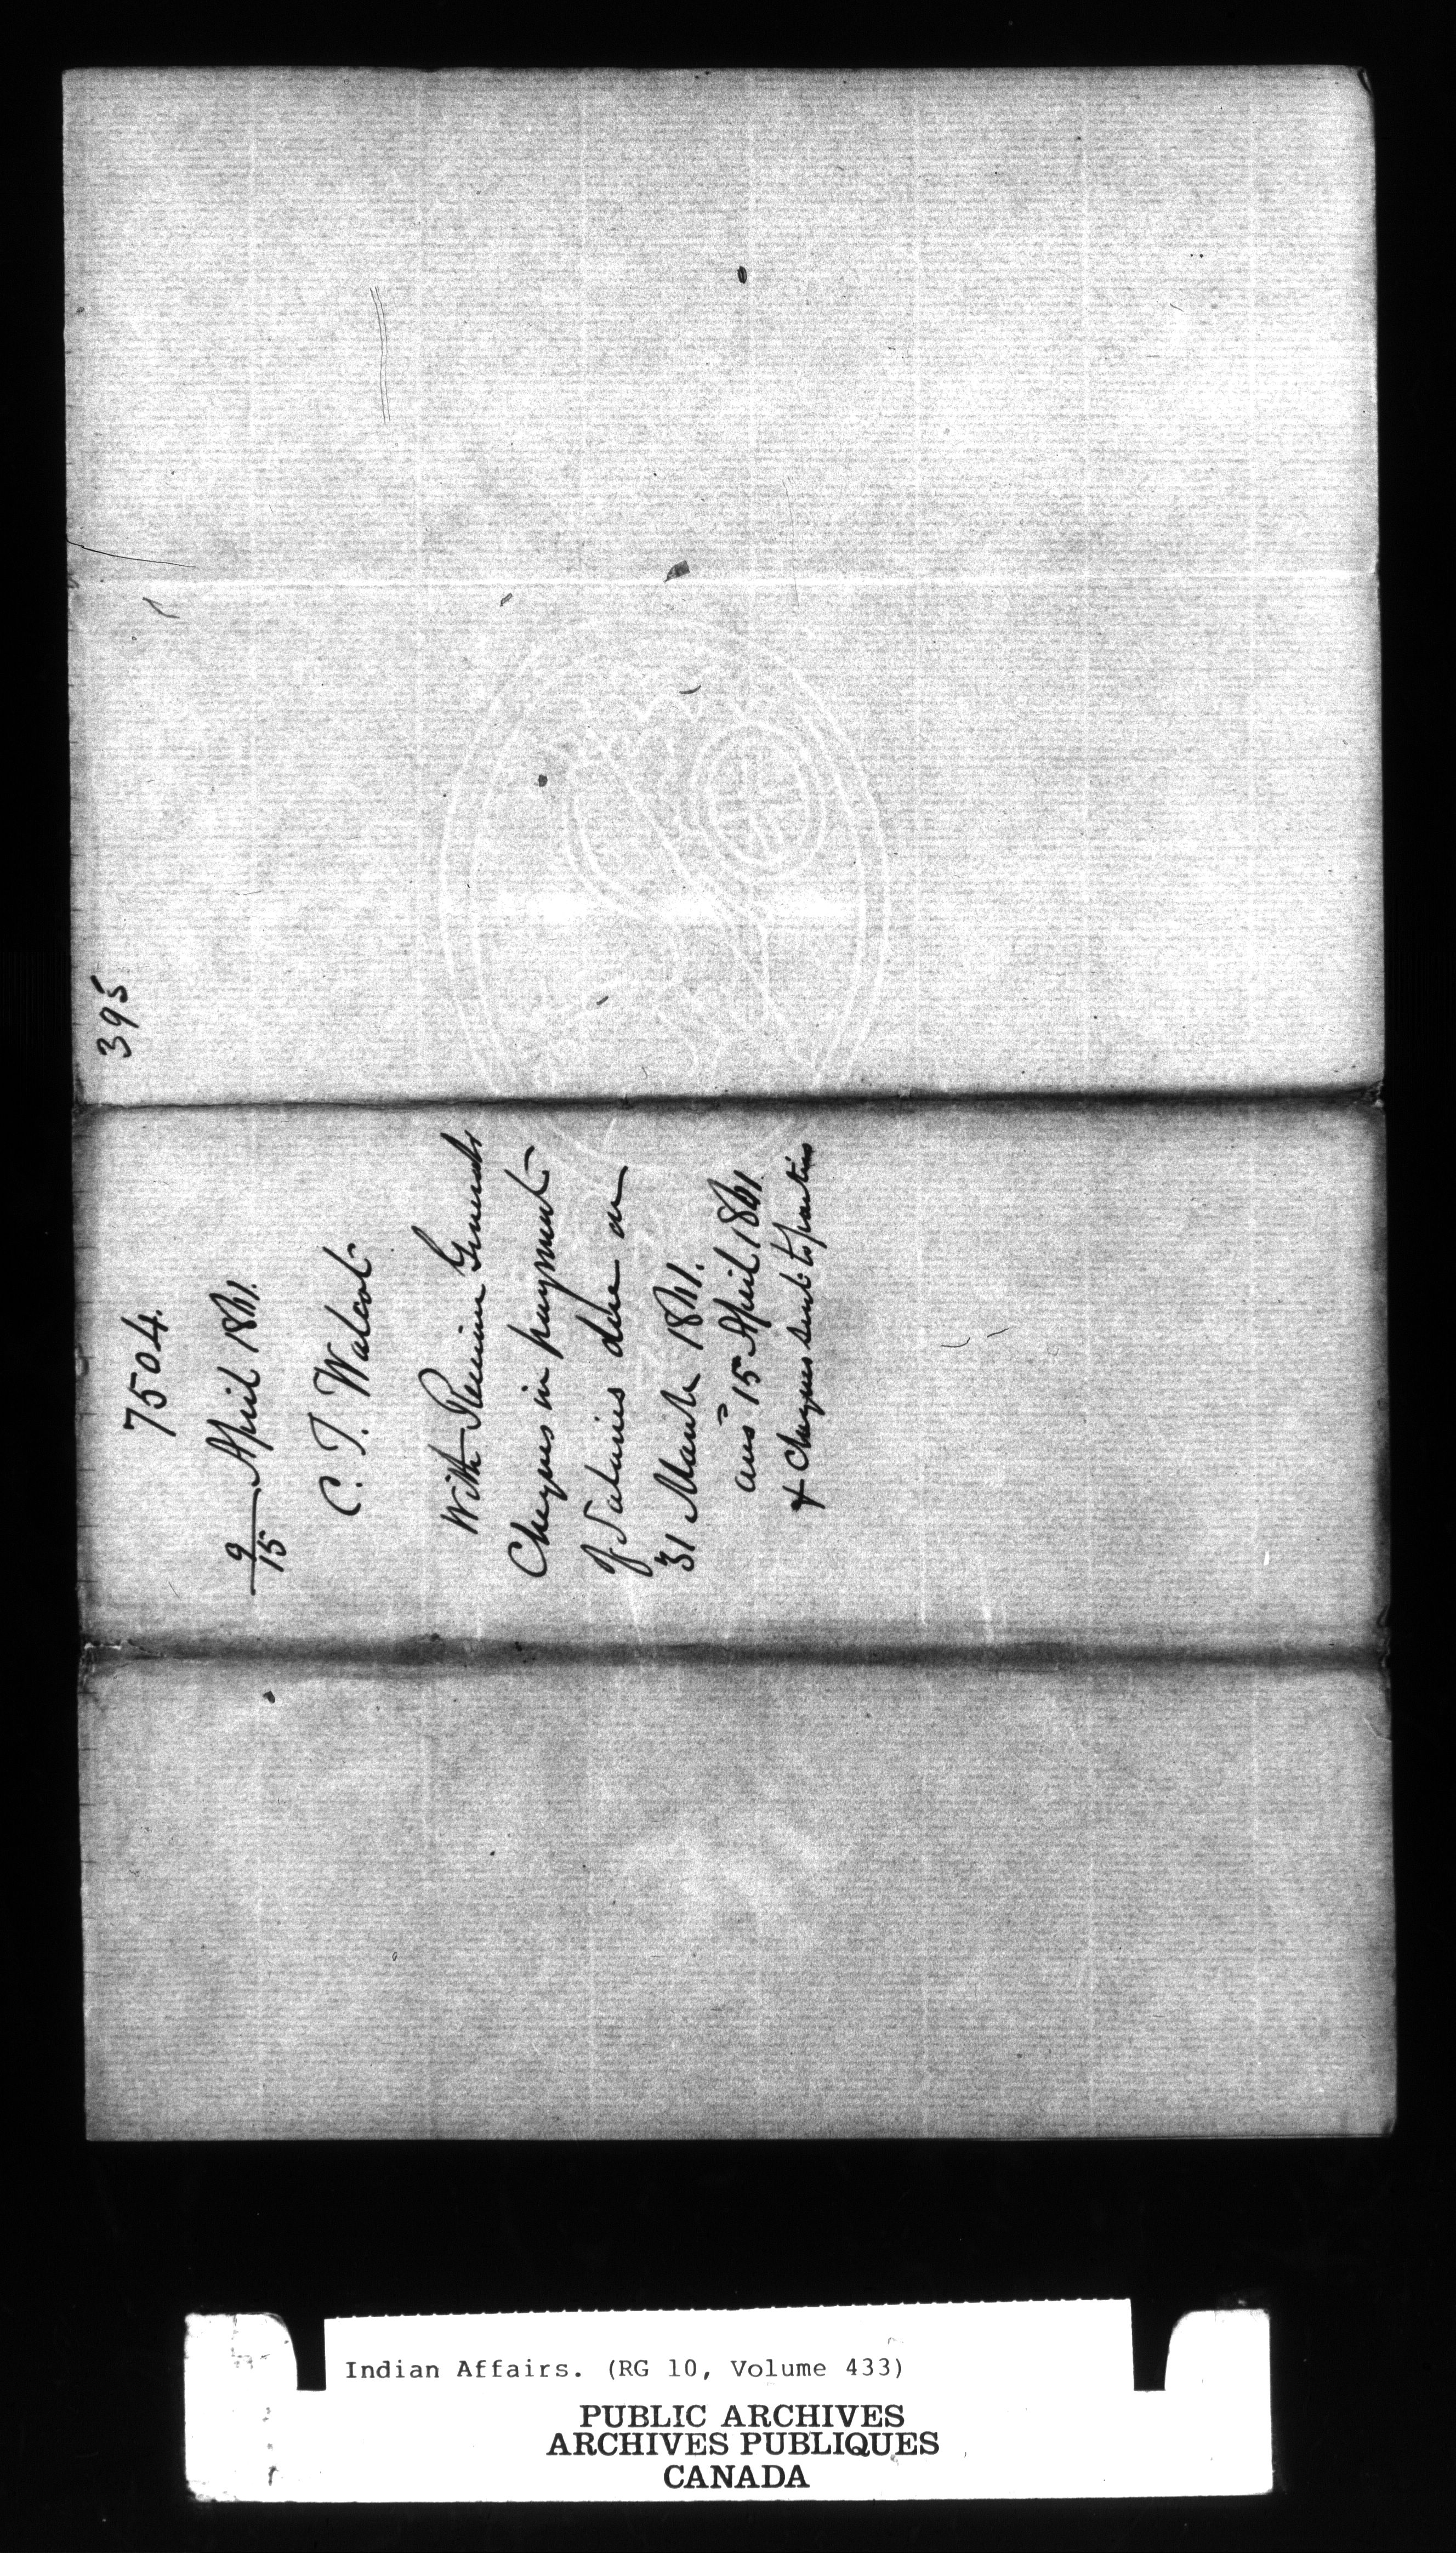 395
7504.
9/15 April 1861.
C. T. Walcot
With Receiver Generals
Cheques in payment
of Salaries due on
31 March 1861.
ans 15 April 1861
& Cheques sent to parties
Indian Affairs. (RG 10, Volume 433)
PUBLIC ARCHIVES
ARCHIVES PUBLIQUES
CANADA